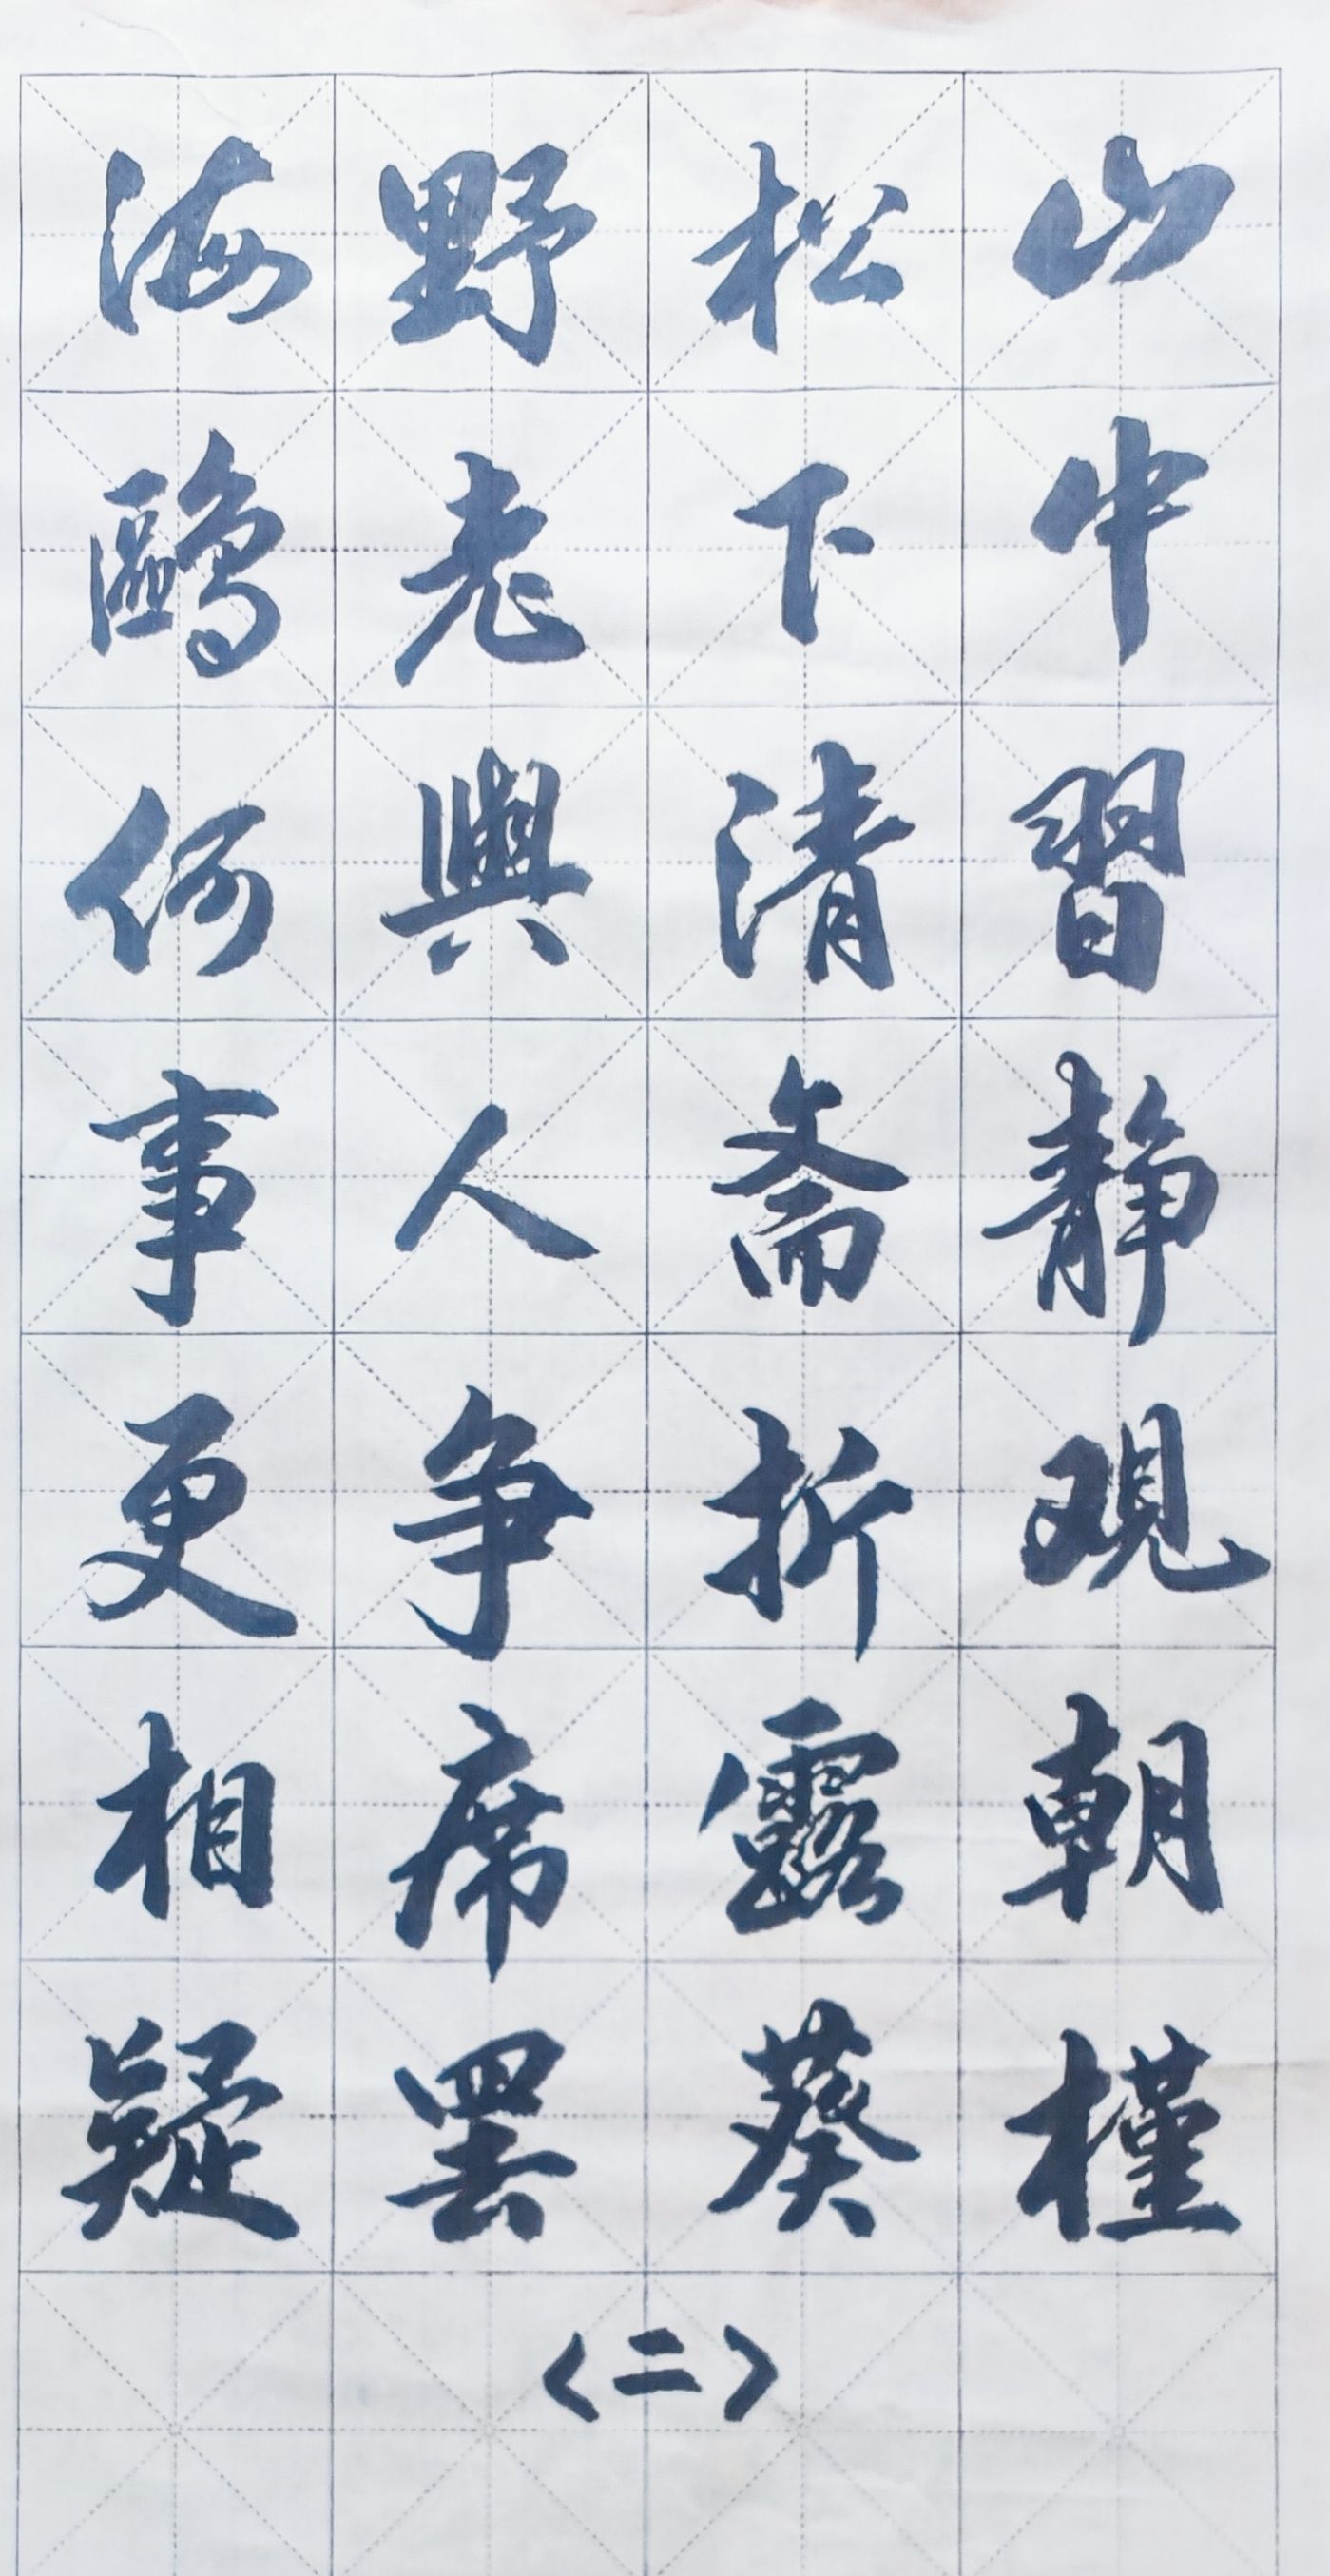 山中習静观朝槿
松下清斋折露葵
野老與人争席罢
海鷗何事更相疑
〈二〉